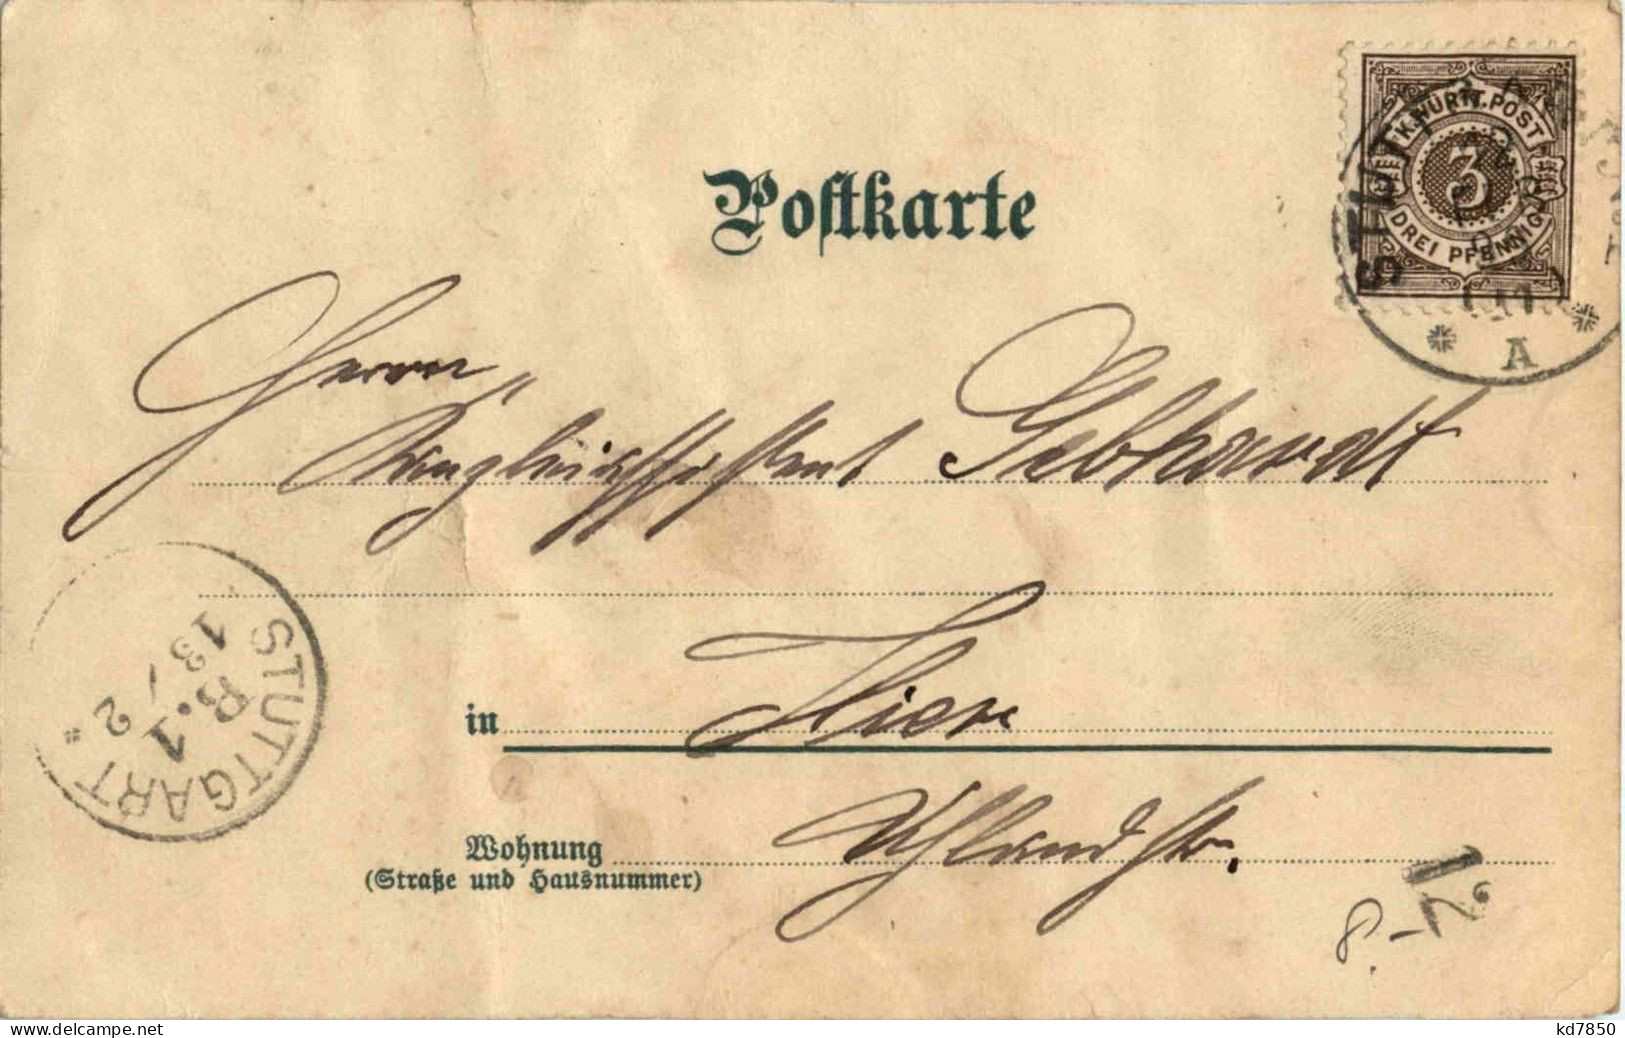 K. WÜRTT. POST
3
DREI PFENNIG
STUTTGART
A
Postkarte
Herrn
Kanzleiassistent Gebhardt
in Hier
Uhlandstr.
Wohnung
(Straße und Hausnummer)
STUTTGART
B. 1
13
2
12
8.
delcampe.net
kd7850